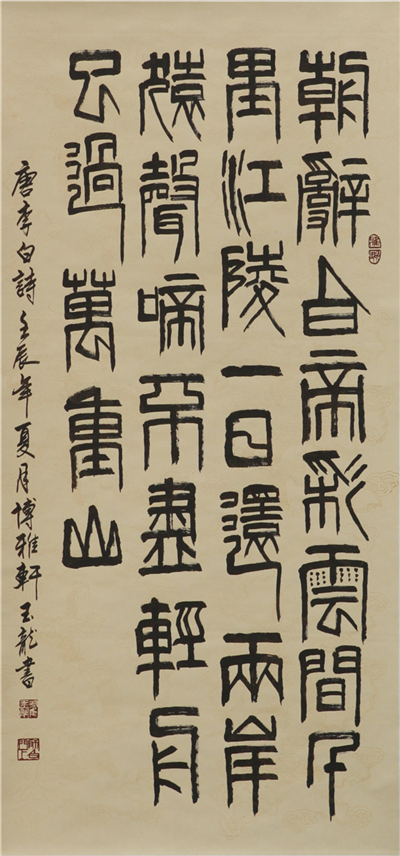 朝辭白帝彩雲間千
里江陵一日還兩岸
猿聲啼不盡輕舟
已過萬重山
唐李白詩壬辰年夏月博雅軒玉龍書